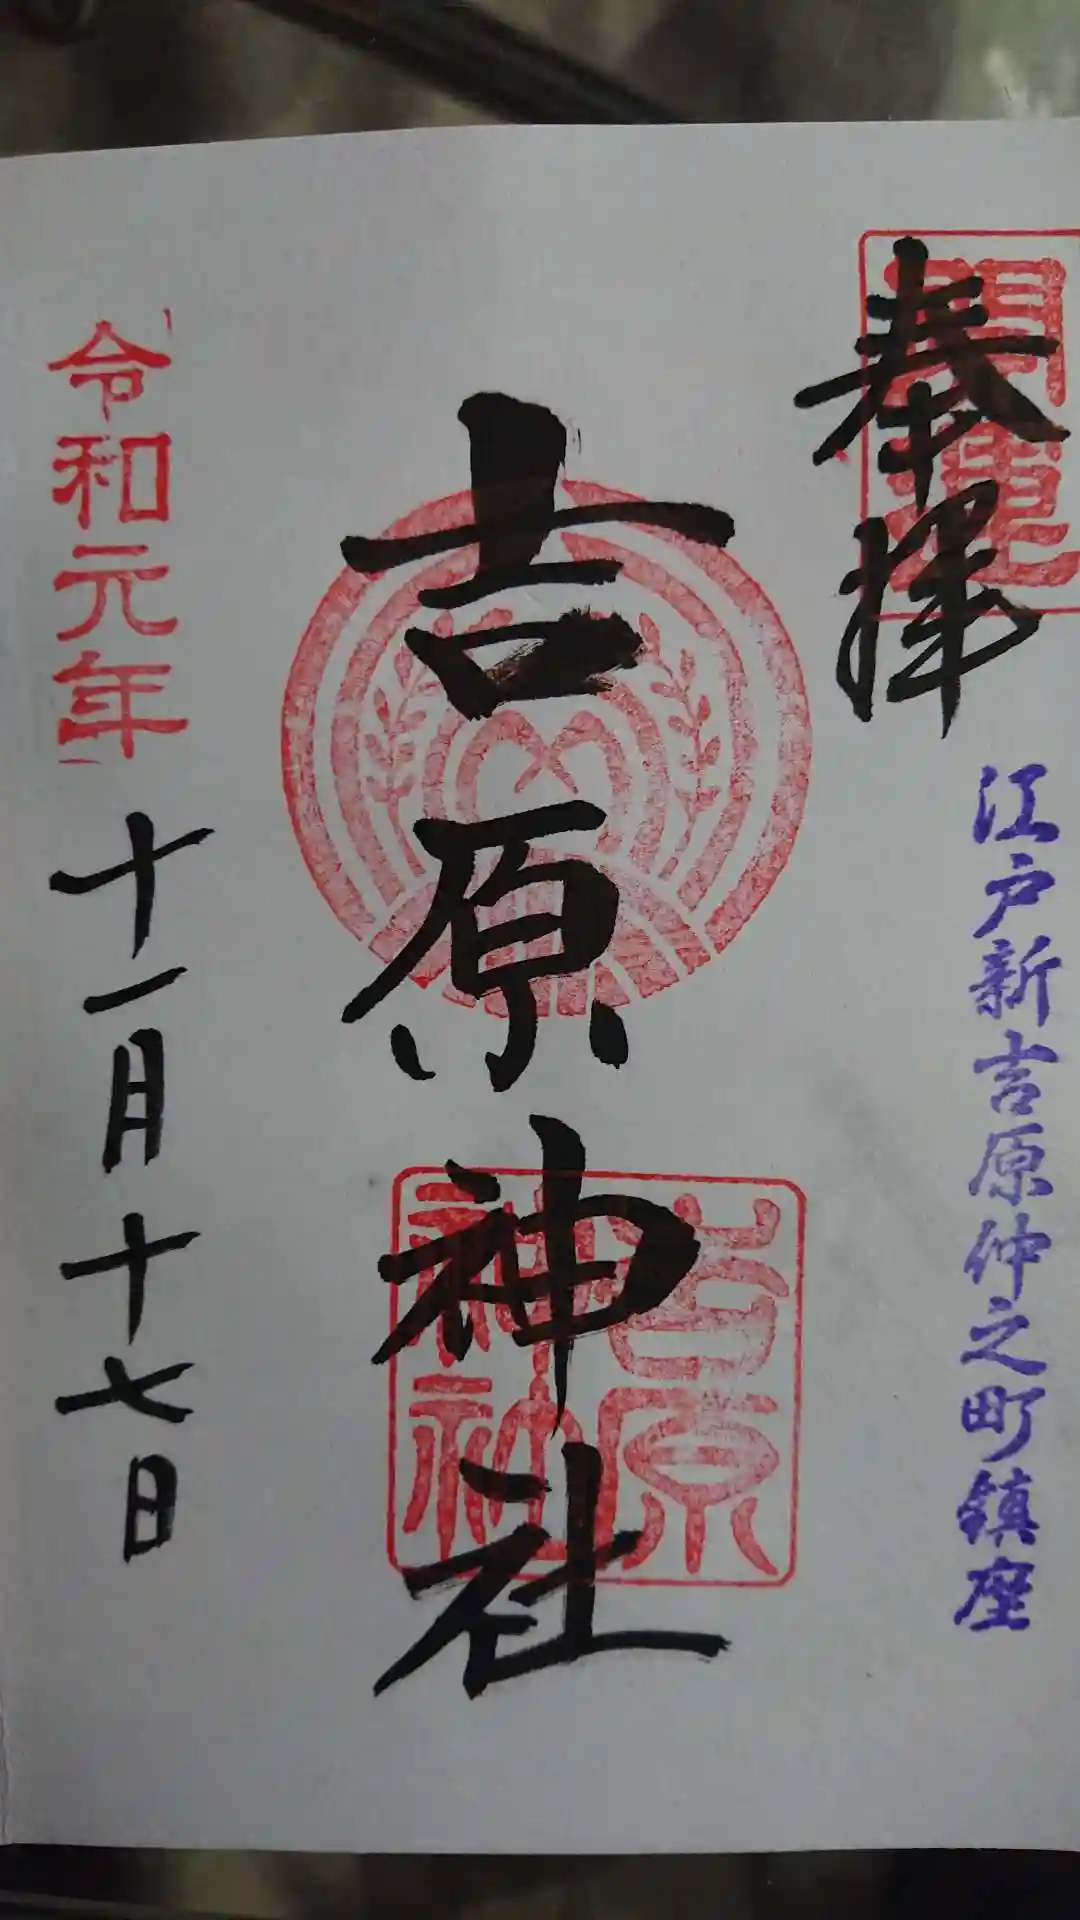 奉拝
開運
江戸新吉原仲之町鎮座
吉原神社
吉原
神社
令和元年
十一月十七日